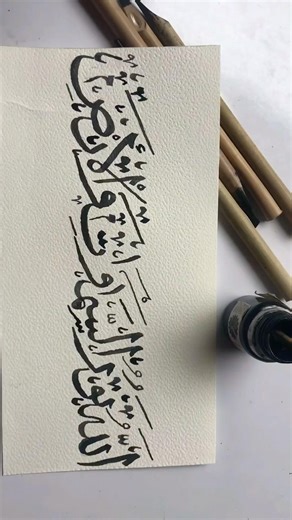 الله نور السماوات والأرض